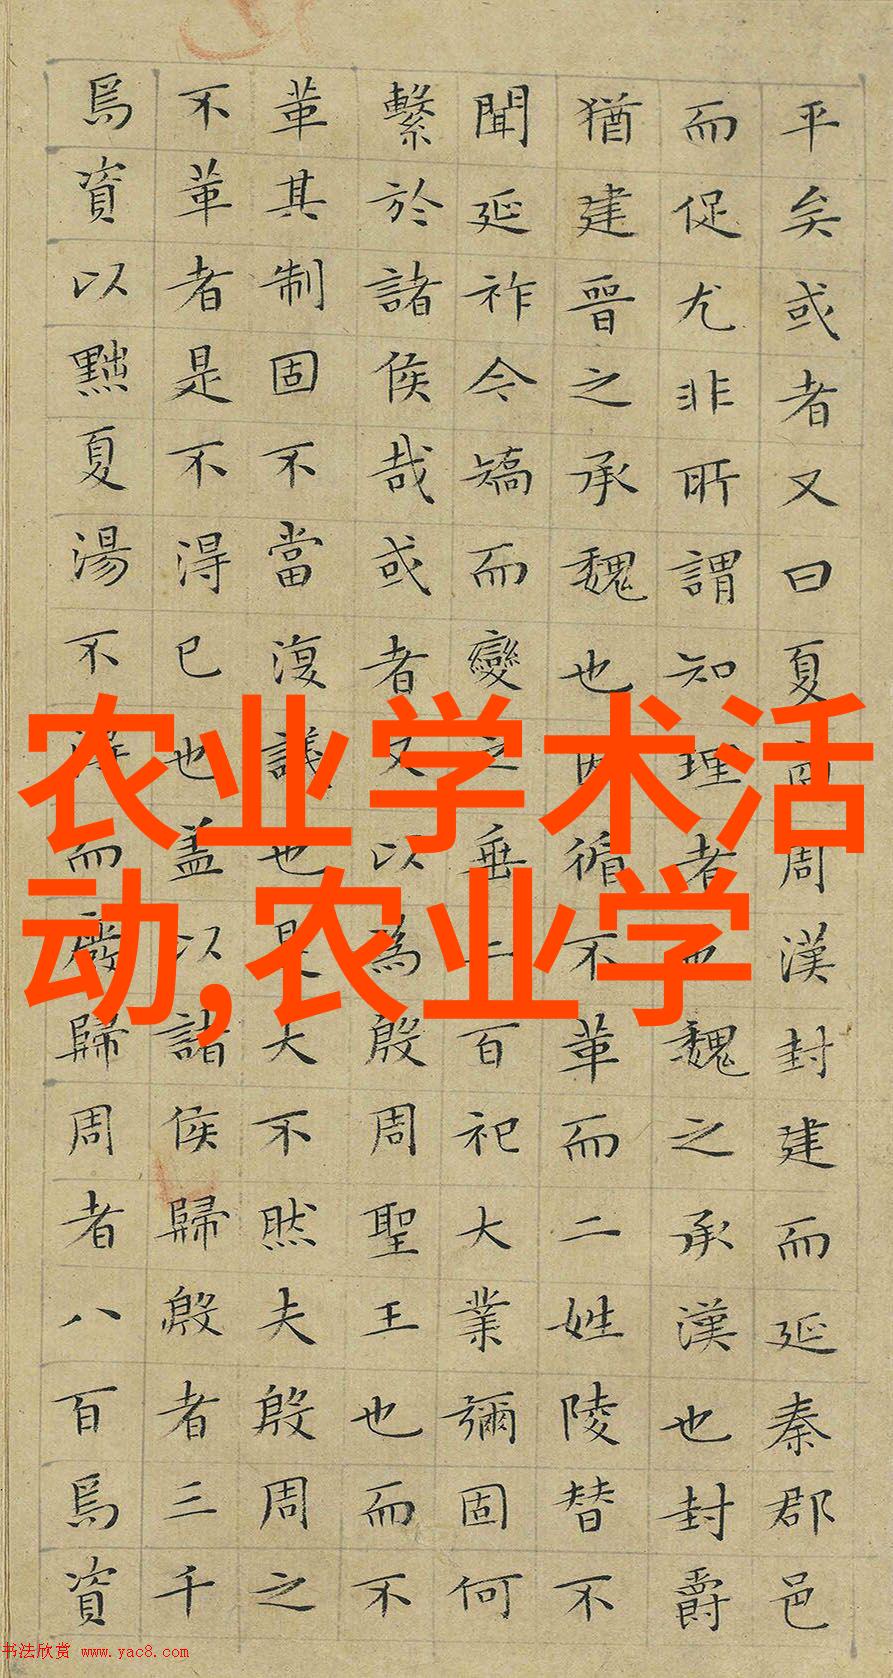 平矣或者又曰夏商周漢封建而延秦郡邑
而促尤非所謂知理者也魏之承漢也封爵
猶建晉之承魏也因循不革而二姓陵替不
聞延祚今矯而變之垂二百祀大業彌固何
繫於諸侯哉或者又以為殷周聖王也而不
革其制固不當復議也是大不然夫殷周之
不革者是不得已也盖以諸侯歸殷者三千
焉資以黜夏湯不得而廢歸周者八百焉資
农业学术活
动,农业学
书法欣赏 www.yac8.com